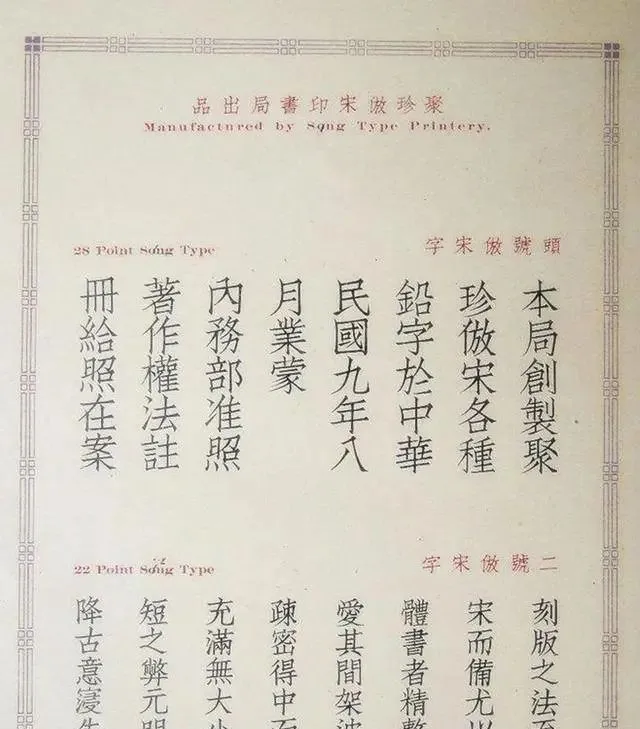 聚珍倣宋印書局出品
Manufactured by Song Type Printery.
頭號倣宋字
28 Point Song Type
本局創製聚
珍倣宋各種
鉛字於中華
民國九年八
月業蒙
內務部准照
著作權法註
冊給照在案
二號倣宋字
22 Point Song Type
刻版之法至
宋而備尤以
體書者精整
愛其間架波
疎密得中而
充滿無大小
短之弊元明
降古意寖失